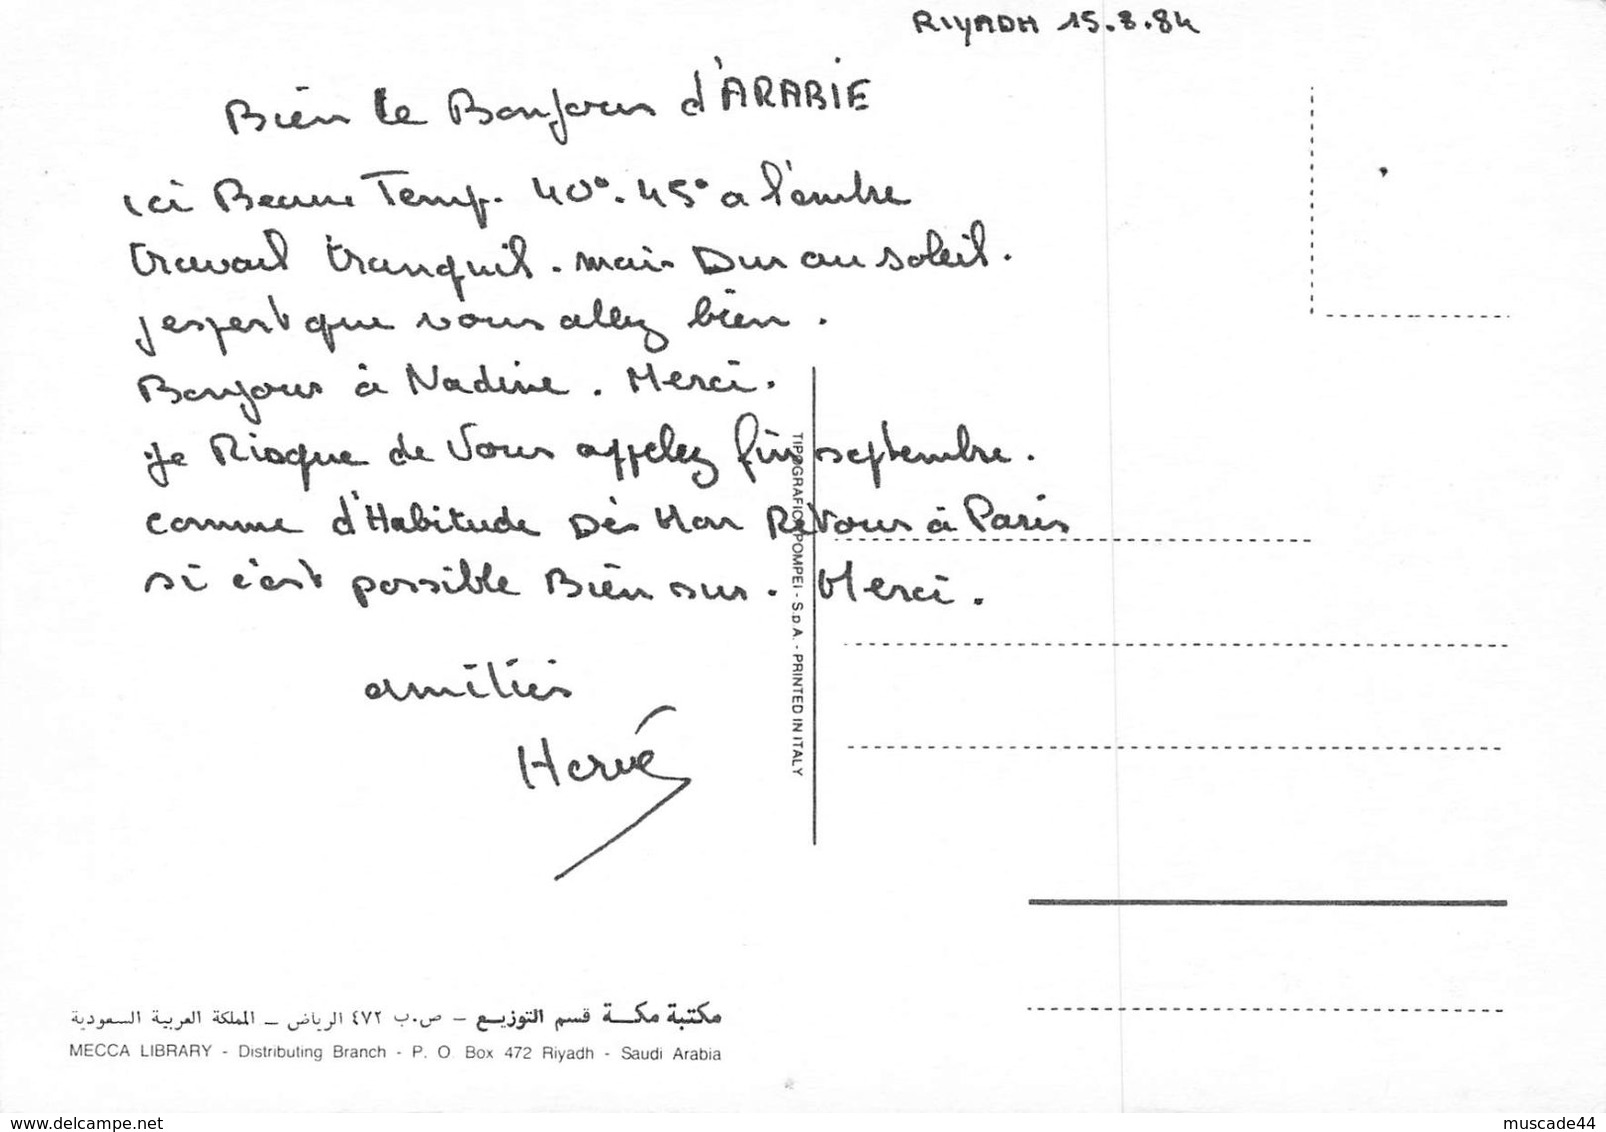 RIYADH 15.8.84
Bien le Bonjour d'ARABIE
ici Beau Temp. 40°.45° a l'ombre
travail tranquil. mais Dur au soleil.
j espert que vous allez bien.
Bonjour à Nadine. Merci.
je Risque de Vous appelez fin septembre.
comme d'Habitude Dès Mon Retour à Paris
si c'est possible Bien sur. Merci.
amitiés
Hervé
TIPOGRAFICA POMPEI - S.p.A. - PRINTED IN ITALY
مكتبة مكــة قسم التوزيــع – ص.ب ٤٧٢ الرياض – المملكة العربية السعودية
MECCA LIBRARY - Distributing Branch - P. O Box 472 Riyadh - Saudi Arabia
www.delcampe.net
muscade44